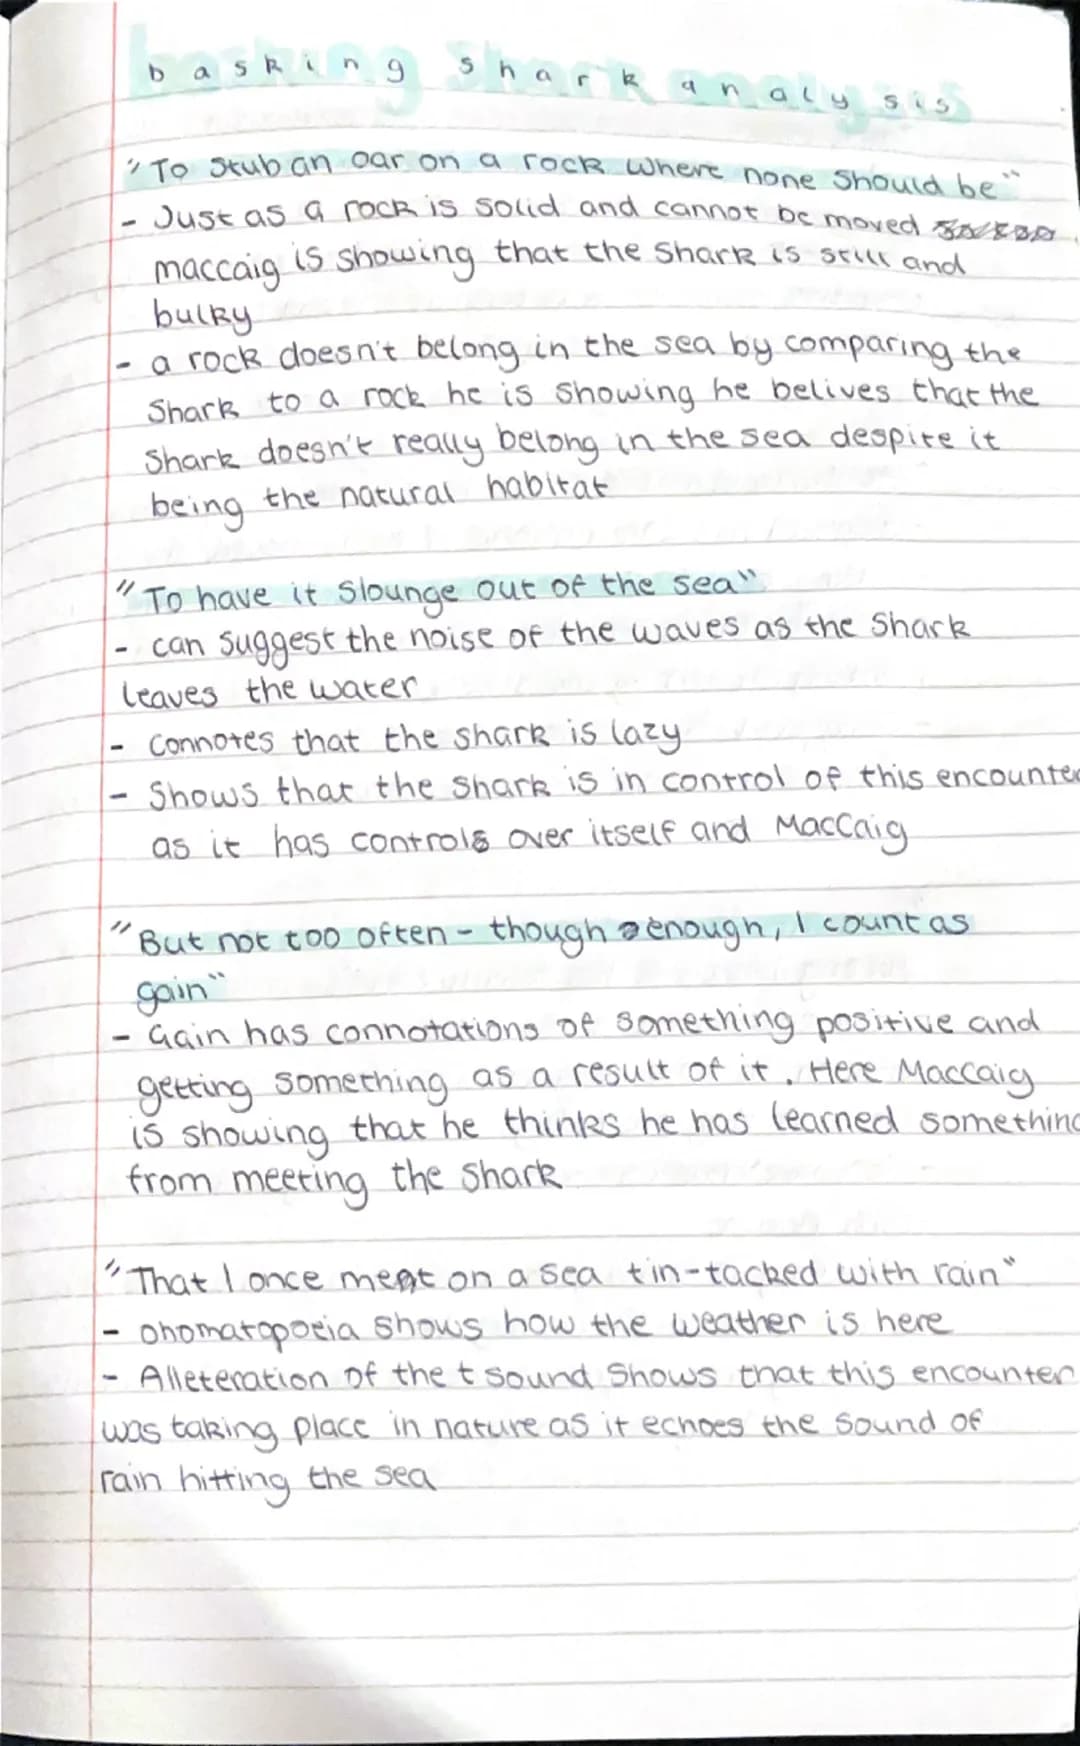 basking shark analysis
"To Stub an oar on a rock where none should be"
- Just as a rock is solid and cannot be moved
maccaig is showing that the shark is still and
bulky
- a rock doesn't belong in the sea by comparing the
Shark to a rock he is showing he belives that the
Shark doesn't really belong in the sea despite it
being the natural habitat
"To have it slounge out of the sea"
- can suggest the noise of the waves as the Shark
leaves the water
- connotes that the shark is lazy
- Shows that the Shark is in control of this encounter
as it has controls over itself and MacCaig
"But not too often - though enough, I count as
gain"
- Gain has connotations of something positive and
getting something as a result of it. Here Maccaig
is showing that he thinks he has learned something
from meeting the Shark
"That I once met on a sea tin-tacked with rain"
- onomatopoeia shows how the weather is here
- Alleteration of the t sound Shows that this encounter
was taking place in nature as it echoes the sound of
rain hitting the sea